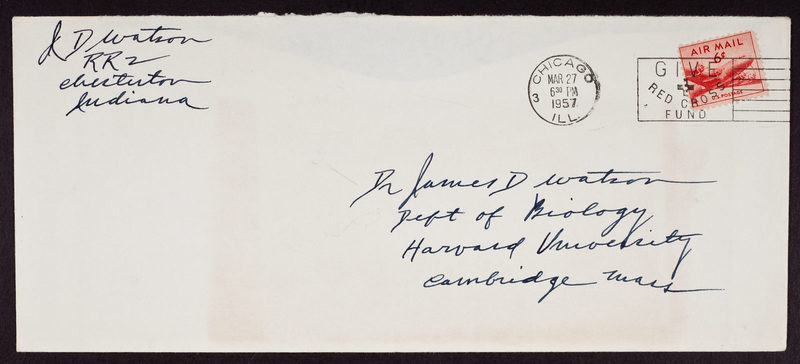 J D Watson
RR2
Chesterton
Indiana
CHICAGO
MAR 27
6 30 PM
1957
3
ILL.
GIVE
RED CROSS
FUND
AIR MAIL
6¢
U.S. POSTAGE
Dr James D Watson
Dept of Biology
Harvard University
Cambridge Mass